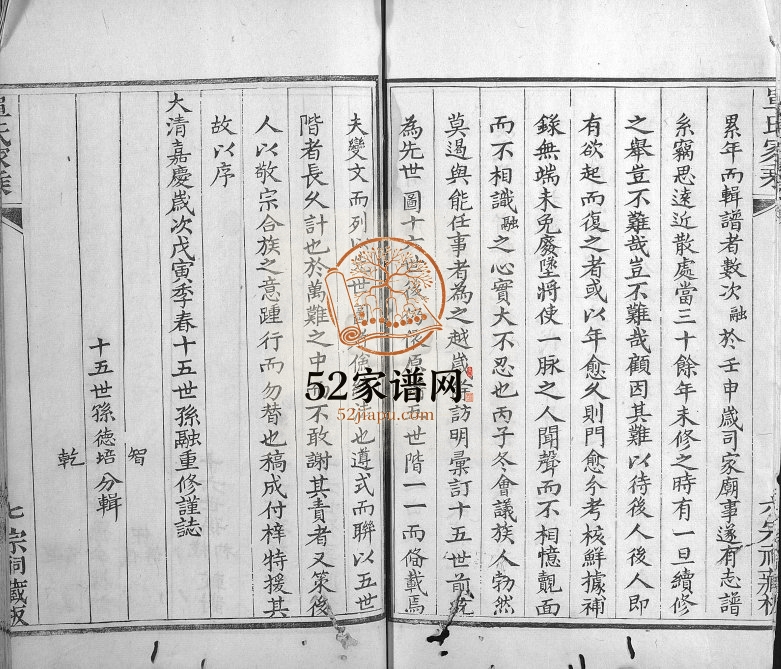 累年而輯譜者數次融於壬申歲司家廟事遂有志譜
系竊思遠近散處當三十餘年未修之時有一旦續修
之舉豈不難哉豈不難哉顧因其難以待後人後人即
有欲起而復之者或以年愈久則門愈分考核鮮據補
錄無端未免廢墜將使一脉之人聞聲而不相憶覿面
而不相識融之心實大不忍也丙子冬會議族人勃然
莫遏與能任事者為之越歲訪明彙訂十五世前
為先世圖十六世後原五世階一一而俻載焉
夫變文而列以世也遵式而聯以五世
階者長久計也於萬難之中而不敢謝其責者又策後
人以敬宗合族之意踵行而勿替也稿成付梓特援其
故以序
大清嘉慶歲次戊寅季春十五世孫融重修謹誌
智
十五世孫德培分輯
乾
氏家乘
七
宗祠藏板
氏家乘
六
宗祠藏板
52家谱网
52jiapu.com